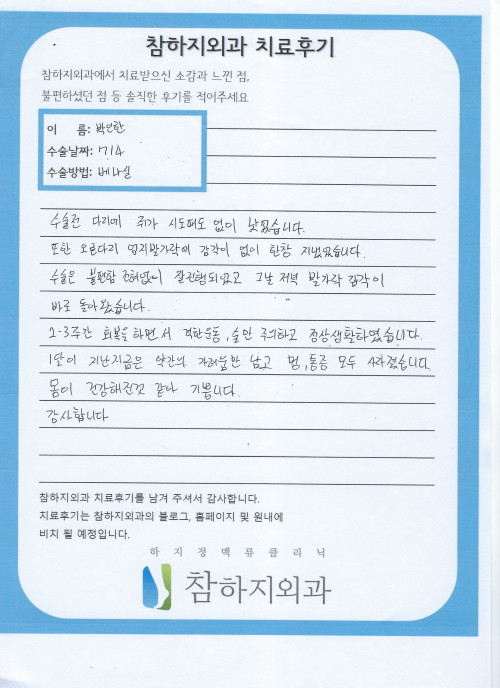 참하지외과 치료후기
참하지외과에서 치료받으신 소감과 느낀 점,
불편하셨던 점 등 솔직한 후기를 적어주세요
이 름: 박인환
수술날짜: 7/4
수술방법: 베나실
수술전 다리에 쥐가 시도때도 없이 낫었습니다.
또한 오른다리 엄지발가락에 감각이 없이 한참 지냈었습니다.
수술은 불편함 전혀없이 잘진행되었고 그날 저녁 발가락 감각이
바로 돌아왔습니다.
2-3주간 회복을 하면서 격한운동, 술만 주의하고 정상생활하였습니다.
1달이 지난지금은 약간의 가려움만 남고 멍, 통증 모두 사라졌습니다.
몸이 건강해진것 같아 기쁩니다.
감사합니다
참하지외과 치료후기를 남겨 주셔서 감사합니다.
치료후기는 참하지외과의 블로그, 홈페이지 및 원내에
비치 될 예정입니다.
하지정맥류클리닉
참하지외과